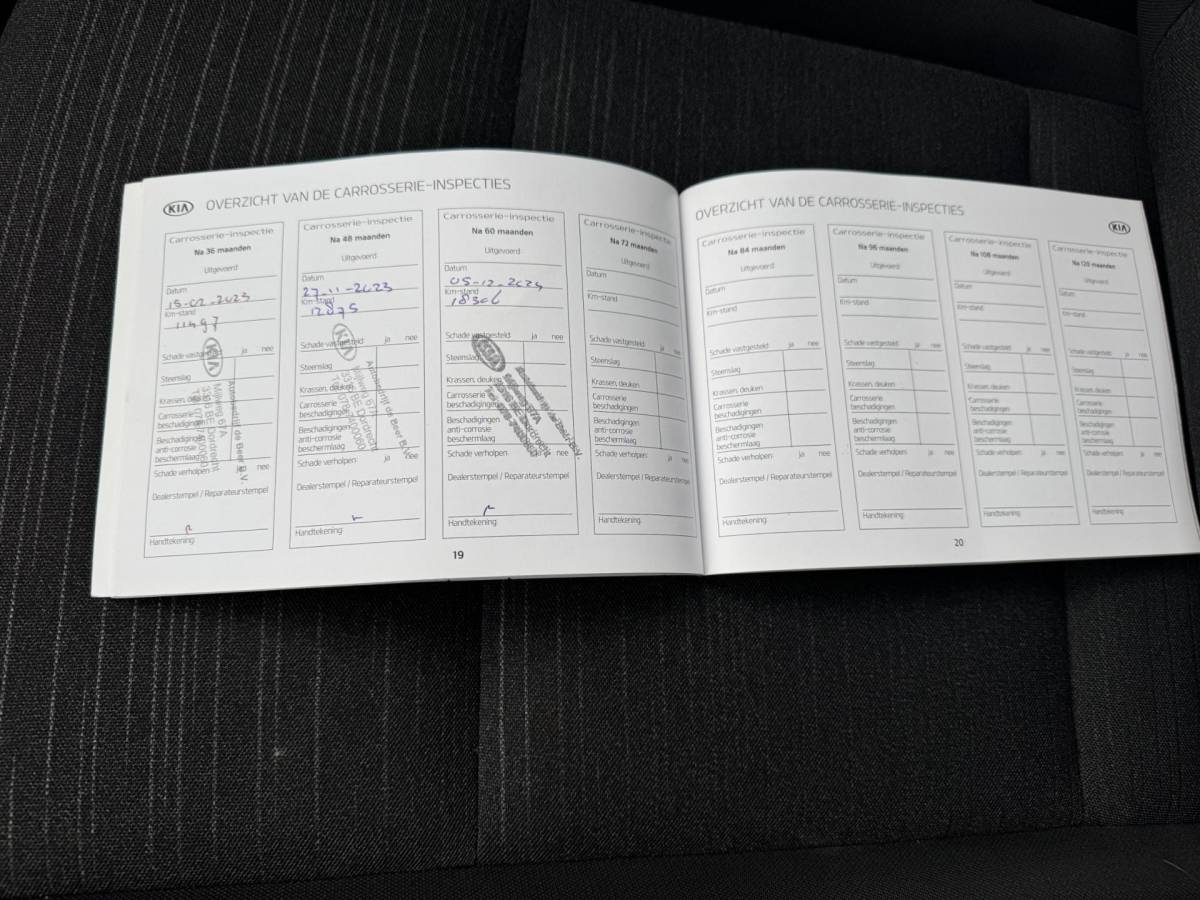 KIA OVERZICHT VAN DE CARROSSERIE-INSPECTIES
Carrosserie-inspectie
Na 36 maanden
Uitgevoerd
Datum
15-02-2023
Km-stand
11497
Schade vastgesteld: ja nee
Steenslag
Krassen, deuken
Carrosserie
beschadigingen
Beschadigingen
anti-corrosie
beschermlaag
Schade verholpen: ja nee
Dealerstempel / Reparateurstempel
Handtekening:
KIA
Autobedrijf de Beer B.V.
Mijlweg 67A
3316 BE Dordrecht
Carrosserie-inspectie
Na 48 maanden
Uitgevoerd
Datum
27-11-2023
Km-stand
12875
Schade vastgesteld: ja nee
Steenslag
Krassen, deuken
Carrosserie
beschadigingen
Beschadigingen
anti-corrosie
beschermlaag
Schade verholpen: ja nee
Dealerstempel / Reparateurstempel
Handtekening:
KIA
Autobedrijf de Beer B.V.
Mijlweg 67A
3316 BE Dordrecht
Carrosserie-inspectie
Na 60 maanden
Uitgevoerd
Datum
05-12-2024
Km-stand
18306
Schade vastgesteld: ja nee
Steenslag
Krassen, deuken
Carrosserie
beschadigingen
Beschadigingen
anti-corrosie
beschermlaag
Schade verholpen: ja nee
Dealerstempel / Reparateurstempel
Handtekening:
KIA
Autobedrijf de Beer B.V.
Mijlweg 67A
3316 BE Dordrecht
Carrosserie-inspectie
Na 72 maanden
Uitgevoerd
Datum
Km-stand
Schade vastgesteld: ja nee
Steenslag
Krassen, deuken
Carrosserie
beschadigingen
Beschadigingen
anti-corrosie
beschermlaag
Schade verholpen: ja nee
Dealerstempel / Reparateurstempel
Handtekening:
19
OVERZICHT VAN DE CARROSSERIE-INSPECTIES KIA
Carrosserie-inspectie
Na 84 maanden
Uitgevoerd
Datum
Km-stand
Schade vastgesteld: ja nee
Steenslag
Krassen, deuken
Carrosserie
beschadigingen
Beschadigingen
anti-corrosie
beschermlaag
Schade verholpen: ja nee
Dealerstempel / Reparateurstempel
Handtekening:
Carrosserie-inspectie
Na 96 maanden
Uitgevoerd
Datum
Km-stand
Schade vastgesteld: ja nee
Steenslag
Krassen, deuken
Carrosserie
beschadigingen
Beschadigingen
anti-corrosie
beschermlaag
Schade verholpen: ja nee
Dealerstempel / Reparateurstempel
Handtekening:
Carrosserie-inspectie
Na 108 maanden
Uitgevoerd
Datum
Km-stand
Schade vastgesteld: ja nee
Steenslag
Krassen, deuken
Carrosserie
beschadigingen
Beschadigingen
anti-corrosie
beschermlaag
Schade verholpen: ja nee
Dealerstempel / Reparateurstempel
Handtekening:
Carrosserie-inspectie
Na 120 maanden
Uitgevoerd
Datum
Km-stand
Schade vastgesteld: ja nee
Steenslag
Krassen, deuken
Carrosserie
beschadigingen
Beschadigingen
anti-corrosie
beschermlaag
Schade verholpen: ja nee
Dealerstempel / Reparateurstempel
Handtekening:
20